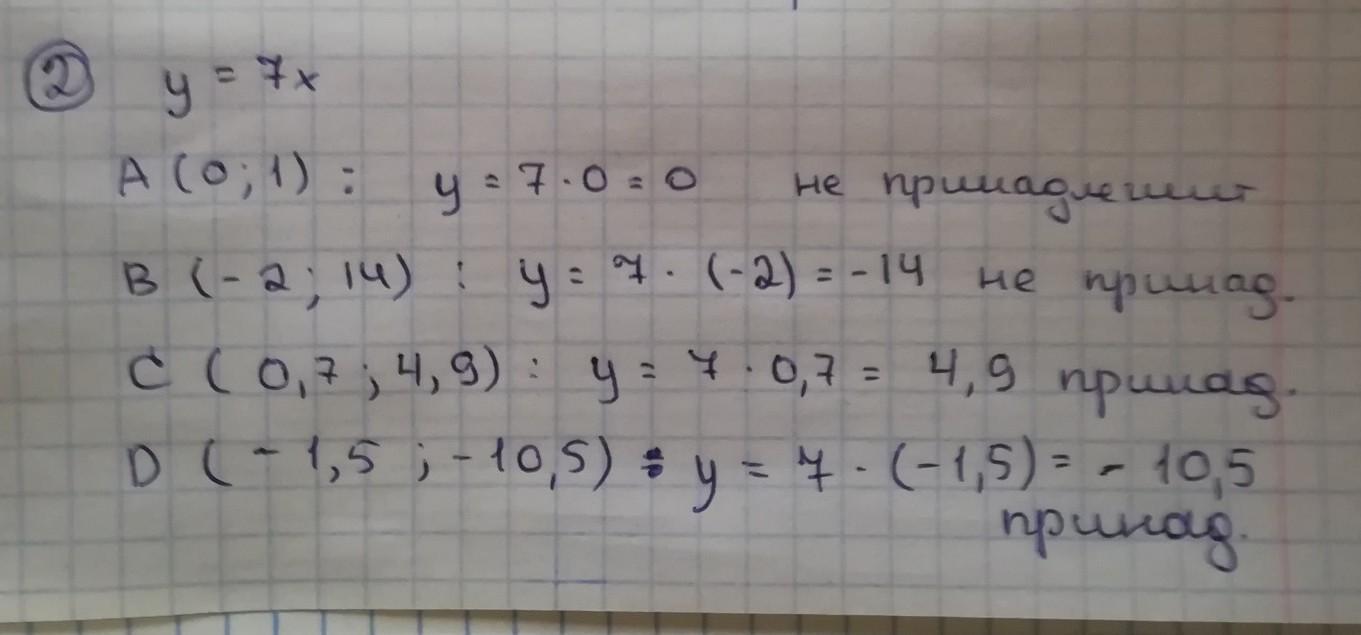 ② y = 7x
A (0; 1) : y = 7 · 0 = 0 не принадлежит
B (- 2; 14) : y = 7 · (-2) = -14 не принад.
C ( 0,7 ; 4,9) : y = 7 · 0,7 = 4,9 принад.
D ( - 1,5 ; -10,5) : y = 7 · (-1,5) = - 10,5
принад.